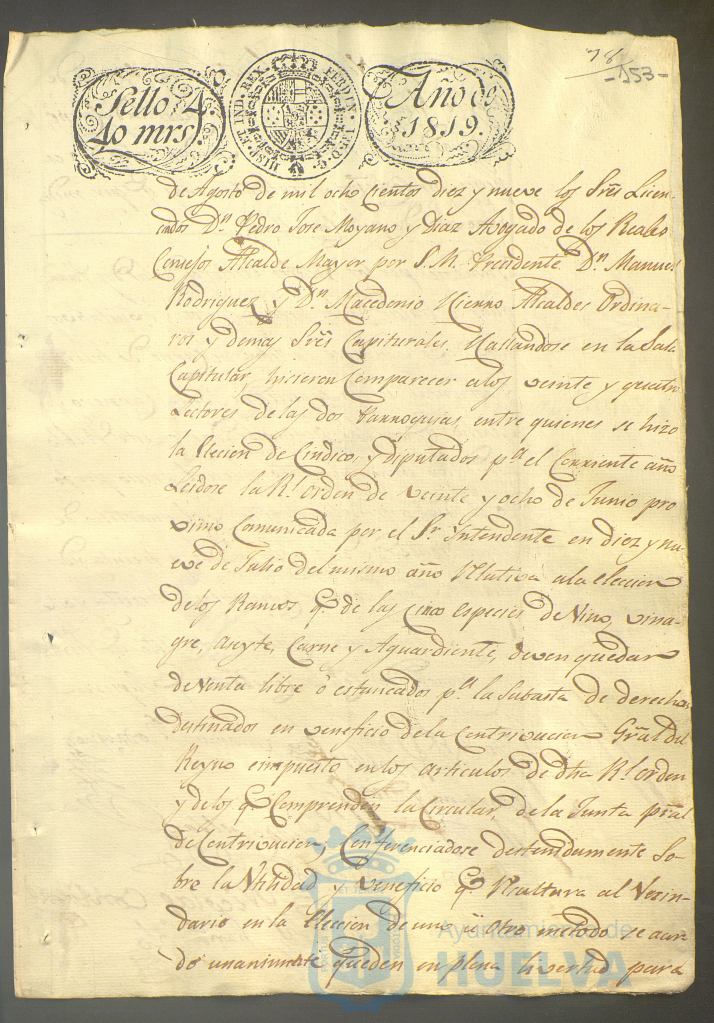 78
-153-
Sello 4.º
40 mrs.
HISP. ET IND. REX. FERDIN. VII. D. G.
Año de
1819.
de Agosto de mil ocho cientos diez y nueve los Sres Licen-
ciados Dn Pedro Jose Moyano y Diaz Avogado de los Reales
Consejos Alcalde Mayor por S. M. Presidente Dn Manuel
Rodriguez y Dn Macedonio Hierro Alcaldes Ordina-
rios y demas Sres Capitulares, Hallandose en la Sala
Capitular, hicieron Comparecer a los veinte y quatro
Lectores de las dos Parroquias, entre quienes se hizo
la Elecion de Cindico, y Diputados pa el Corriente año
Leidose la Rl orden de veinte y ocho de Junio pro
ximo Comunicada por el Sr Intendente en diez y nu-
eve de Julio del mismo año relativa a la eleccion
de los Ramos q de las Cinco especies de Vino, vina-
gre, aseyte, Carne y Aguardiente, deven quedar
de Venta libre ò estancados pa la Subasta de derechos
destinados en veneficio de la Contrivucion Gral del
Reyno e impuesto en los articulos de dha Rl orden
y de los q Comprenden la Circular, de la Junta pral
de Contrivucion, Conferenciadose destendumente So-
bre la Utilidad y veneficio q Resultara al Vecin-
dario en la Eleccion de uno ü otro metodo se acor-
do unanimte queden en plena livertad para
Ayuntamiento de
HUELVA